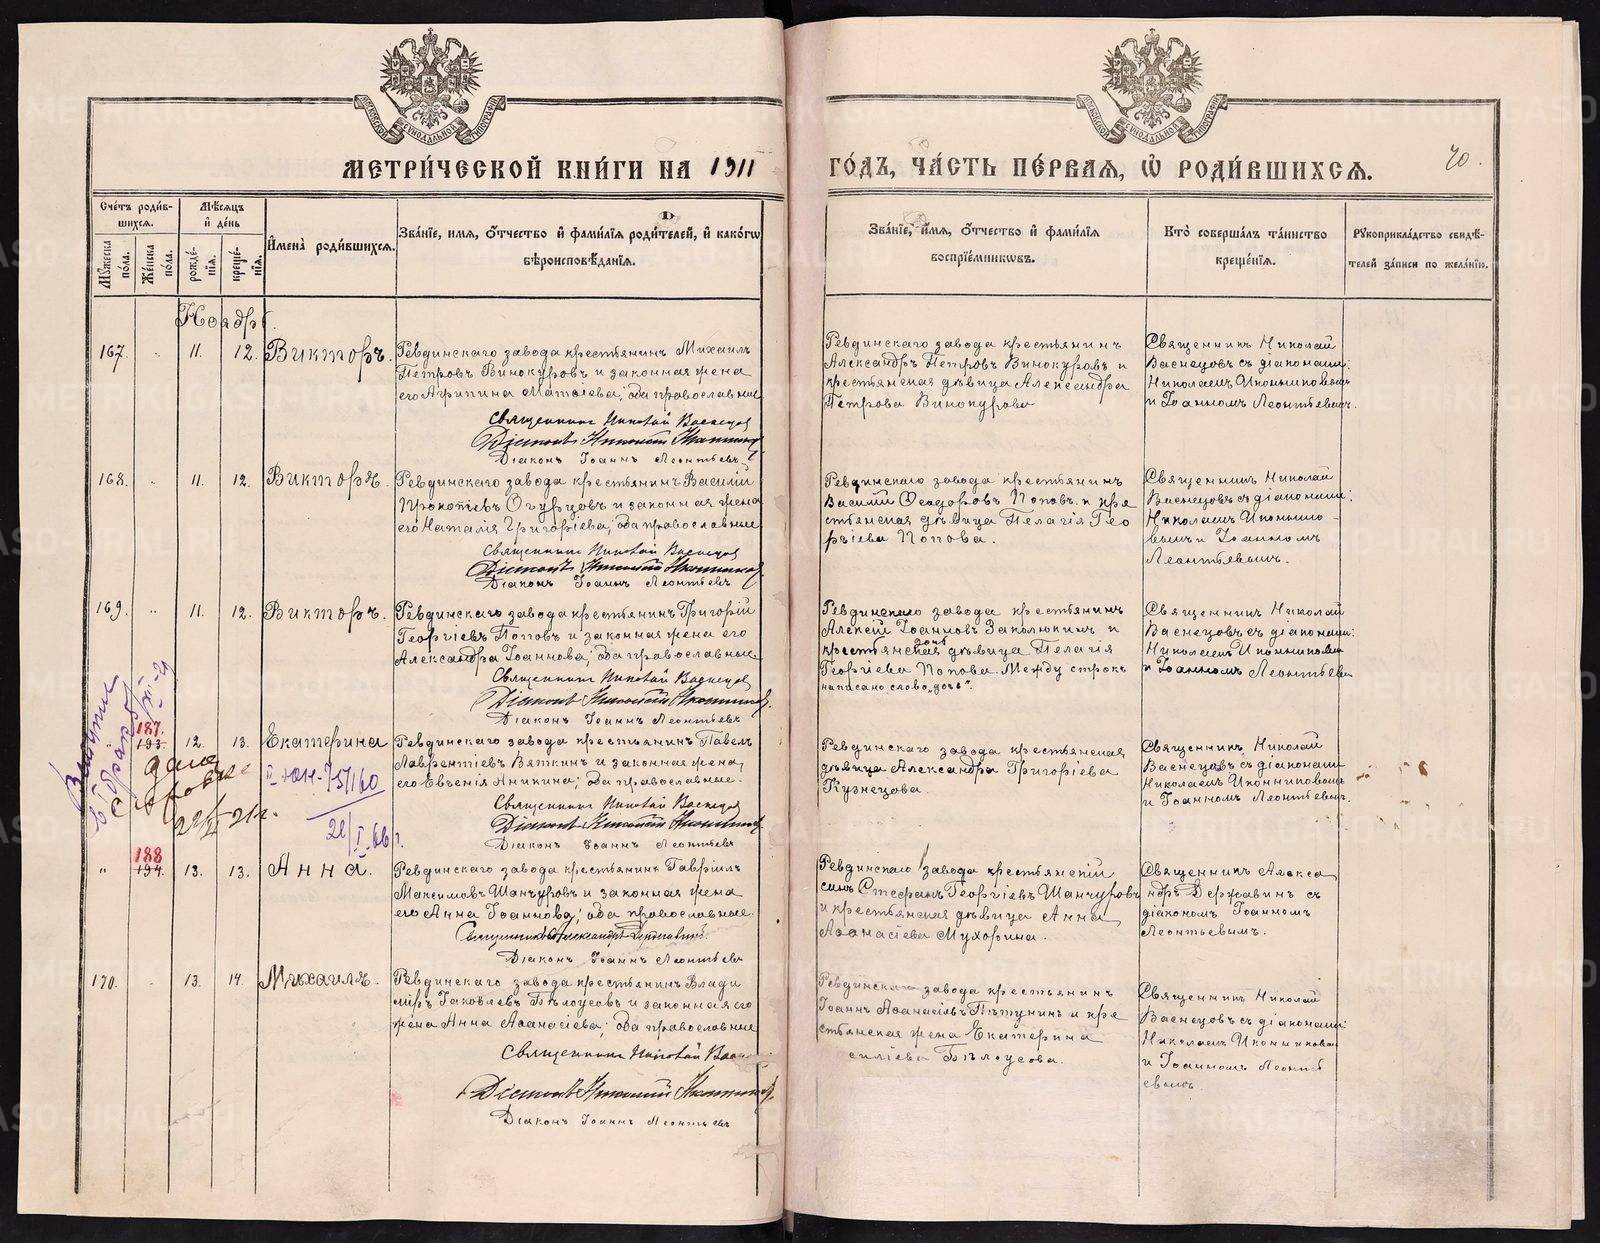 МЕТРИ́ЧЕСКОЙ КНИ́ГИ НА 1911
ГО́ДЪ, ЧА́СТЬ ПЕ́РВАЯ, Ѡ҆ РОДИ́ВШИХСЯ.
40.
Сче́тъ роди́в-
шихся.
Му́жеска по́ла.
Же́нска по́ла.
Мѣ́сяцъ и҆ де́нь
рожде́-
нїя.
креще́-
нїя.
И҆мена̀ роди́вшихся.
Зва́нїе, и҆мя, ѻ҆́тчество и҆ фами́лїя роди́телей, и҆ како́гѡ
вѣроисповѣ́данїя.
Зва́нїе, и҆́мя, ѻ҆́тчество и҆ фами́лїя
воспрїе́мникѡвъ.
Кто̀ соверша́лъ та́инство
креще́нїя.
Рꙋкоприкла́дство свидѣ́-
телей за́писи по жела́нїю.
Ноябрь.
167. " 11. 12. Викторъ.
Ревдинскаго завода крестьянинъ Михаилъ
Петровъ Винокуровъ и законная жена
его Агрипина Матѳіева; оба православные
Священникъ Николай Васнецовъ
Діаконъ Николай Иконниковъ
Діаконъ Іоаннъ Леонтьевъ
Ревдинскаго завода крестьянинъ
Александръ Петровъ Винокуровъ и
крестьянская дѣвица Александра
Петрова Винокурова
Священникъ Николай
Васнецовъ съ діаконами:
Николаемъ Иконниковымъ
и Іоанномъ Леонтьевымъ.
168. " 11. 12. Викторъ.
Ревдинскаго завода крестьянинъ Василій
Прокопьевъ Огурцовъ и законная жена
его Наталія Григоріева; оба православные
Священникъ Николай Васнецовъ
Діаконъ Николай Иконниковъ
Діаконъ Іоаннъ Леонтьевъ
Ревдинскаго завода крестьянинъ
Василій Ѳеодоровъ Поповъ и кре
стьянская дѣвица Пелагія Гео
ргіева Попова.
Священникъ Николай
Васнецовъ съ діаконами:
Николаемъ Иконнико-
вымъ и Іоанномъ
Леонтьевымъ.
169. " 11. 12. Викторъ.
Ревдинскаго завода крестьянинъ Григорій
Георгіевъ Поповъ и законная жена его
Александра Іоаннова; оба православные.
Священникъ Николай Васнецовъ
Діаконъ Николай Иконниковъ
Діаконъ Іоаннъ Леонтьевъ
Ревдинскаго завода крестьянинъ
Алексій Іоанновъ Заколюкинъ и
дочь
крестьянская дѣвица Пелагія
Георгіева Попова. Между строкъ
написано слово „дочь“.
Священникъ Николай
Васнецовъ съ діаконами:
Николаемъ Иконниковымъ
и Іоанномъ Леонтьевы
187.
" 193. 12. 13. Екатерина
II-ЮН-751160
22/I-66 г.
Ревдинскаго завода крестьянинъ Павелъ
Лаврентіевъ Вяткинъ и законная жена
его Евгенія Аникина; оба православные.
Священникъ Николай Васнецовъ
Діаконъ Николай Иконниковъ
Діаконъ Іоаннъ Леонтьевъ
Ревдинскаго завода крестьянская
дѣвица Александра Григоріева
Кузнецова.
Священникъ Николай
Васнецовъ съ діаконами
Николаемъ Иконниковымъ
и Іоанномъ Леонтьевымъ.
188
" 194. 13. 13. Анна.
Ревдинскаго завода крестьянинъ Гавріилъ
Максимовъ Шанчуровъ и законная жена
его Анна Іоаннова; оба православные.
Священникъ Александръ Державинъ.
Діаконъ Іоаннъ Леонтьевъ
Ревдинскаго завода крестьянскій
сынъ Стефанъ Георгіевъ Шанчуровъ
и крестьянская дѣвица Анна
Аѳанасіева Мухорина.
Священникъ Алекса
ндръ Державинъ съ
діакономъ Іоанномъ
Леонтьевымъ.
170. " 13. 14. Михаилъ.
Ревдинскаго завода крестьянинъ Влади
міръ Іаковлевъ Бѣлоусовъ и законная его
жена Анна Аѳанасіева; оба православные
Священникъ Николай Васн
Діаконъ Николай Иконниковъ
Діаконъ Іоаннъ Леонтьевъ
Ревдинскаго завода крестьянинъ
Іоаннъ Аѳанасіевъ Пѣтунинъ и кре
стьянская жена Екатерина
силіева Бѣлоусова.
Священникъ Николай
Васнецовъ съ діаконами:
Николаемъ Иконниковы
и Іоанномъ Леонть
евымъ